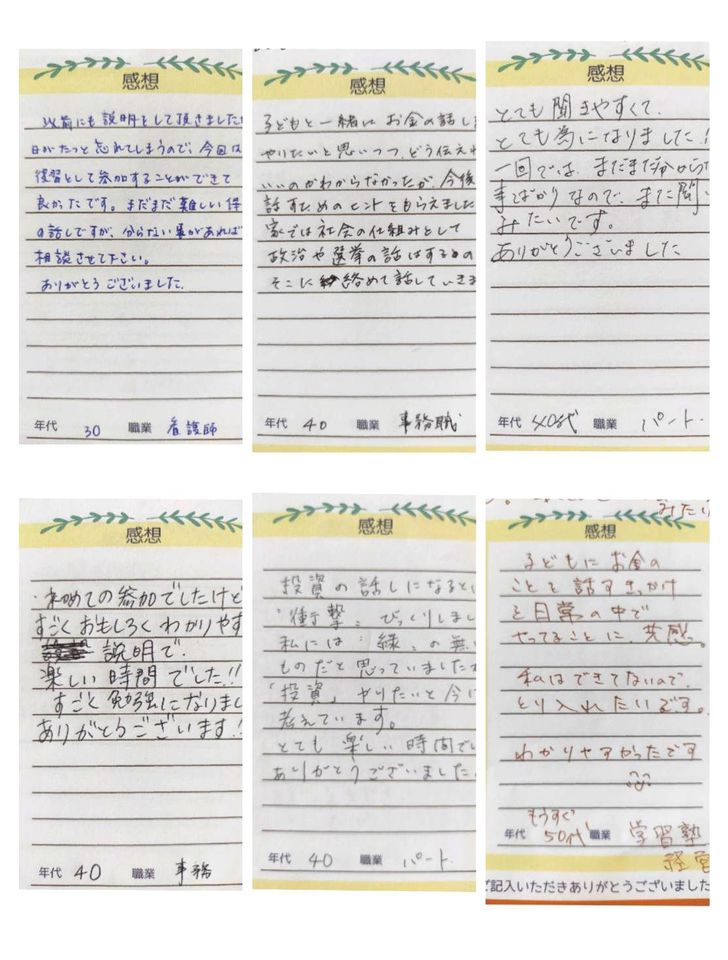 感想
以前にも説明をして頂きました
日がたつと忘れてしまうので、今回は
復習として参加することができて
良かったです。まだまだ難しい
の話しですが、分らない事があれば
相談させて下さい。
ありがとうございました。
年代 30 職業 看護師
感想
子どもと一緒にお金の話し
やりたいと思いつつ、どう伝え
いいのかわからなかったが、今後
話すためのヒントをもらえました
家では社会の仕組みとして
政治や選挙の話はするの
そこに絡めて話していき
年代 40 職業 事務職
感想
とても聞きやすくて、
とても為になりました!
一回では、まだまだ分から
事ばかりなので、また聞い
みたいです。
ありがとうございました
年代 40代 職業 パート
感想
初めての参加でしたけど
すごくおもしろくわかりやす
説明で、
楽しい時間でした!!
すごく勉強になりまし
ありがとうございます!
年代 40 職業 事務
感想
投資の話しになると
"衝撃" びっくりしまし
私には"縁"の無い
ものだと思っていました
「投資」やりたいと今
考えています。
とても楽しい時間で
ありがとうございました。
年代 40 職業 パート
みたい
感想
子どもにお金の
ことを話すきっかけ
を日常の中で
やってることに、共感。
私はできてないので、
とり入れたいです。
わかりやすかったです
もうすぐ
年代 50代 職業 学習塾
経営
ご記入いただきありがとうございました